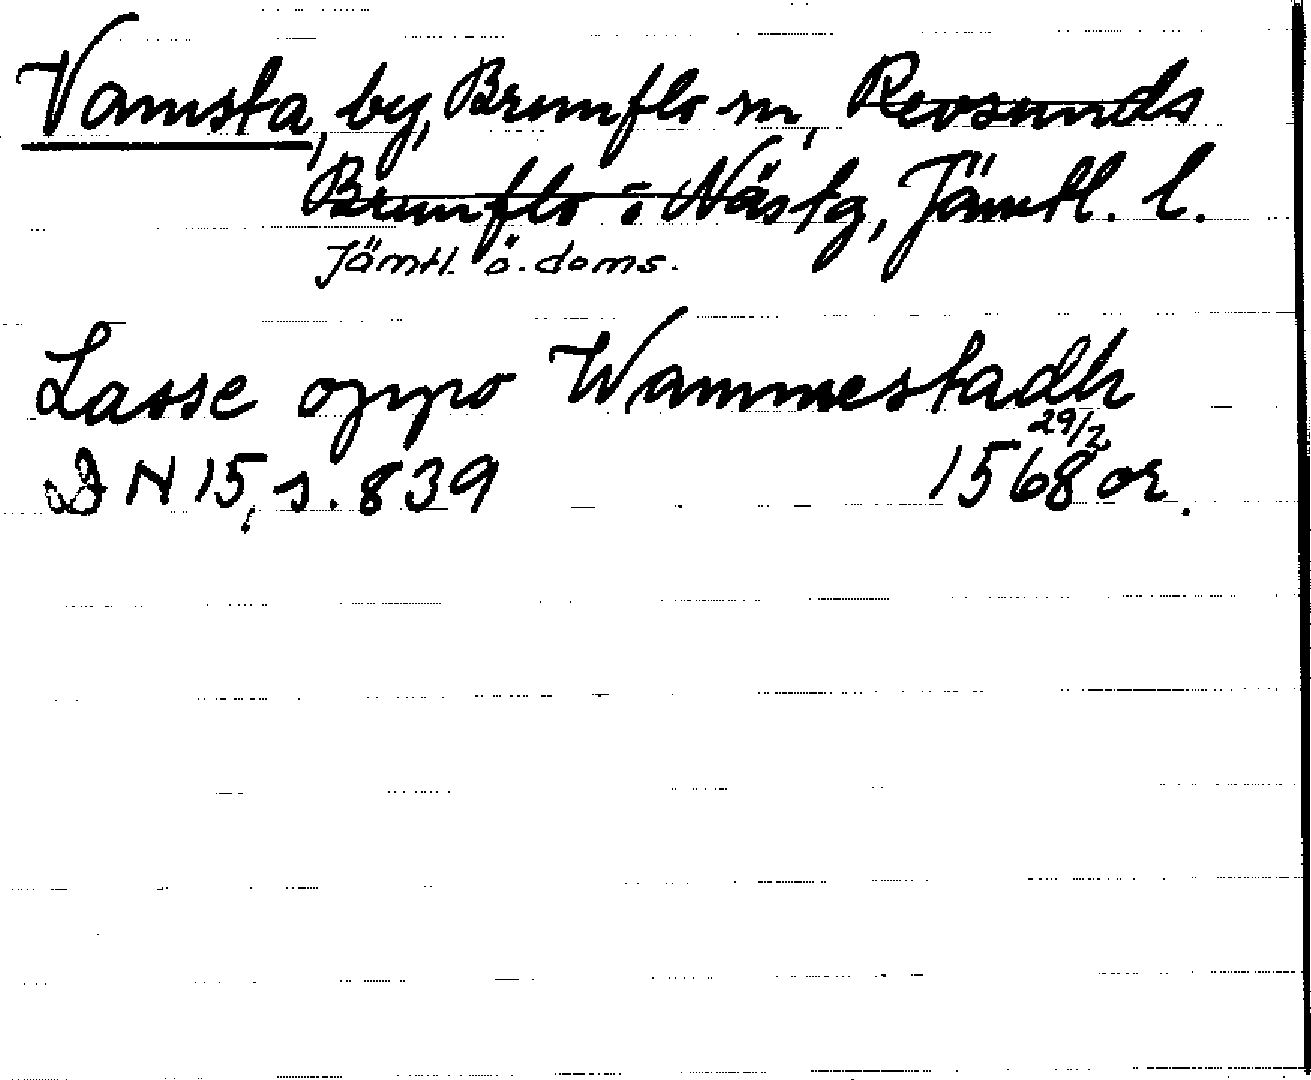 Vamsta, by, Brunflo sn, Revsunds
Brunflo o Näs tg, Jämtl. l.
Jämtl. ö. doms.
Lasse oppo Wammestadh
29/2
DN 15, s. 839 1568 or.